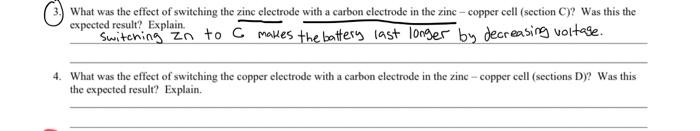 3. What was the effect of switching the zinc electrode with a carbon electrode in the zinc – copper cell (section C)? Was this the
expected result? Explain.
Switching Zn to C makes the battery last longer by decreasing voltage.
4. What was the effect of switching the copper electrode with a carbon electrode in the zinc – copper cell (sections D)? Was this
the expected result? Explain.